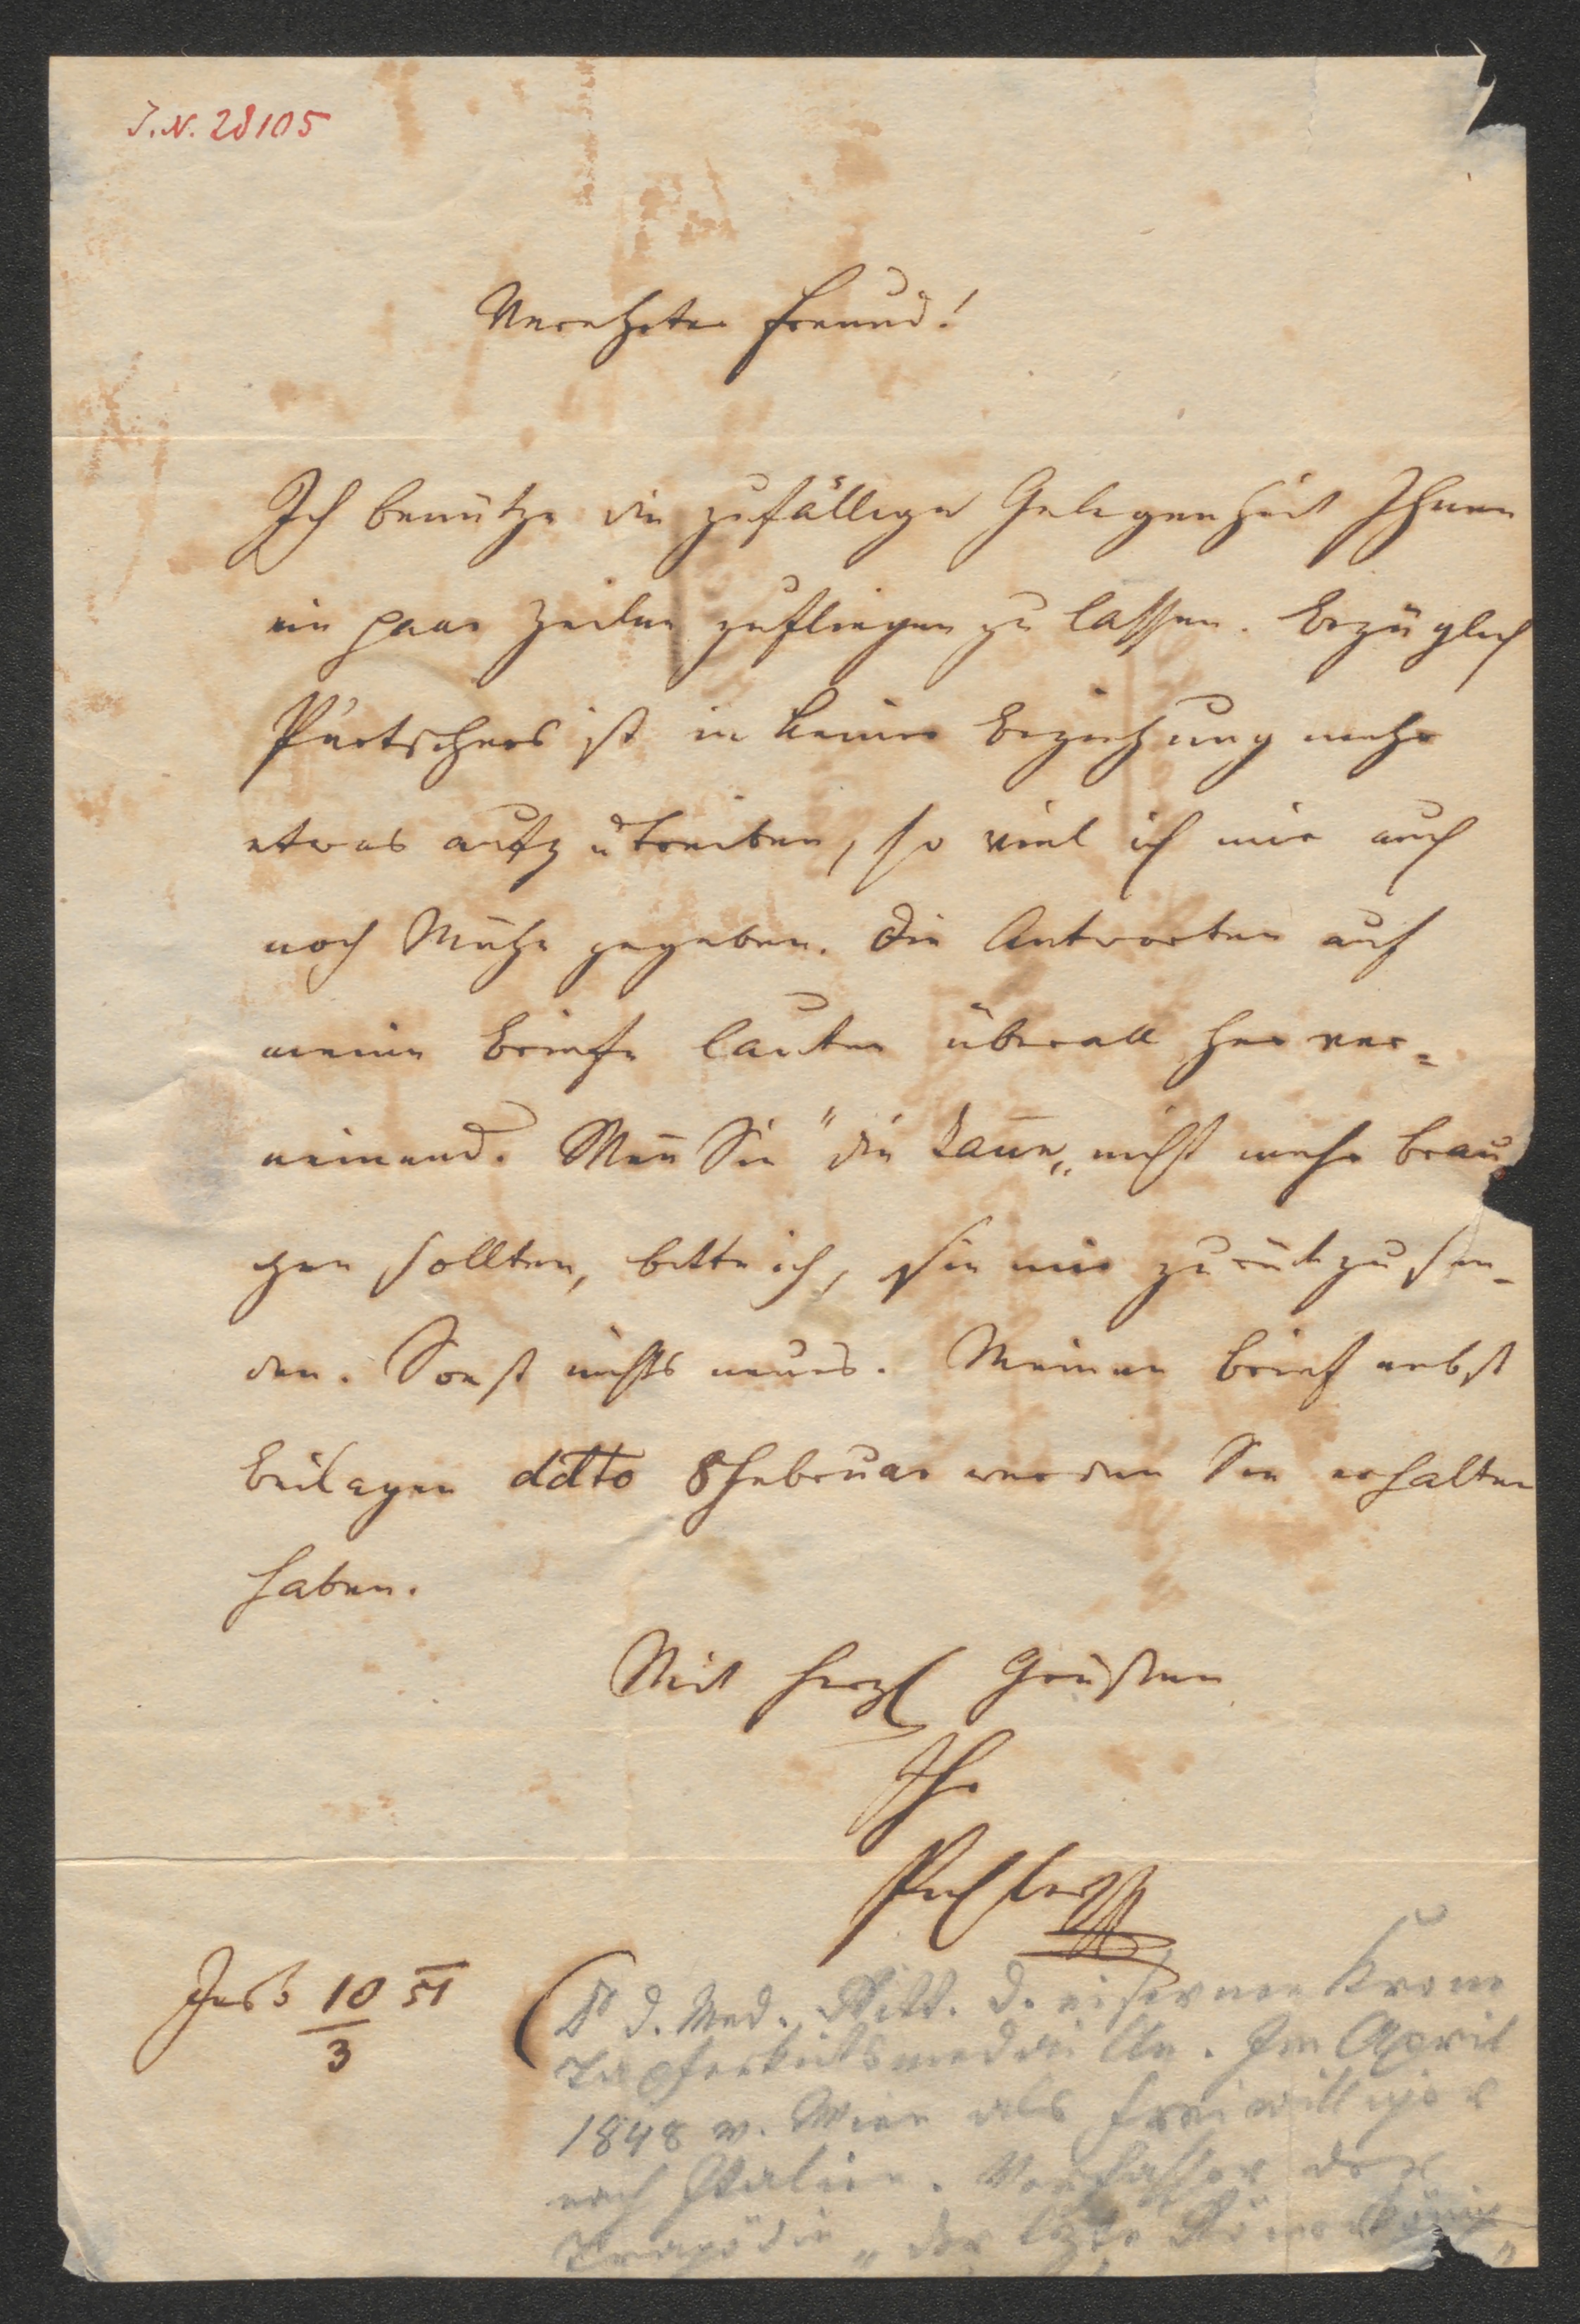 I.N. 28105
Verehrter Freund!
Ich benütze die zufällige Gelegenheit Ihnen
ein paar Zeilen zufliegen zu lassen. Bezüglich
Pürtschers ist in keiner Beziehung mehr
etwas aufzutreiben, so viel ich mir auch
noch Mühe gegeben. Die Antworten auf
meine Briefe lauten überall her ver=
neinend. Weñ Sie "die Taüe„ nicht mehr brau
chen sollten, bitte ich, sie mir zurückzusen-
den. Sonst nichts neues. Meinen Brief nebst
Beilagen ddto 8 Februar werden Sie erhalten
haben.
Mit herzl Grüßen
Ihr
Pichler
Insb 10/3 51
(Dr d. Med. Ritt. d. eisernen Krone
Tapferkeitsmedaille. Im April
1848 v. Wien als Freiwilliger
nach Italien. Verfasser der
Tragödie „der letzte Römerkönig"